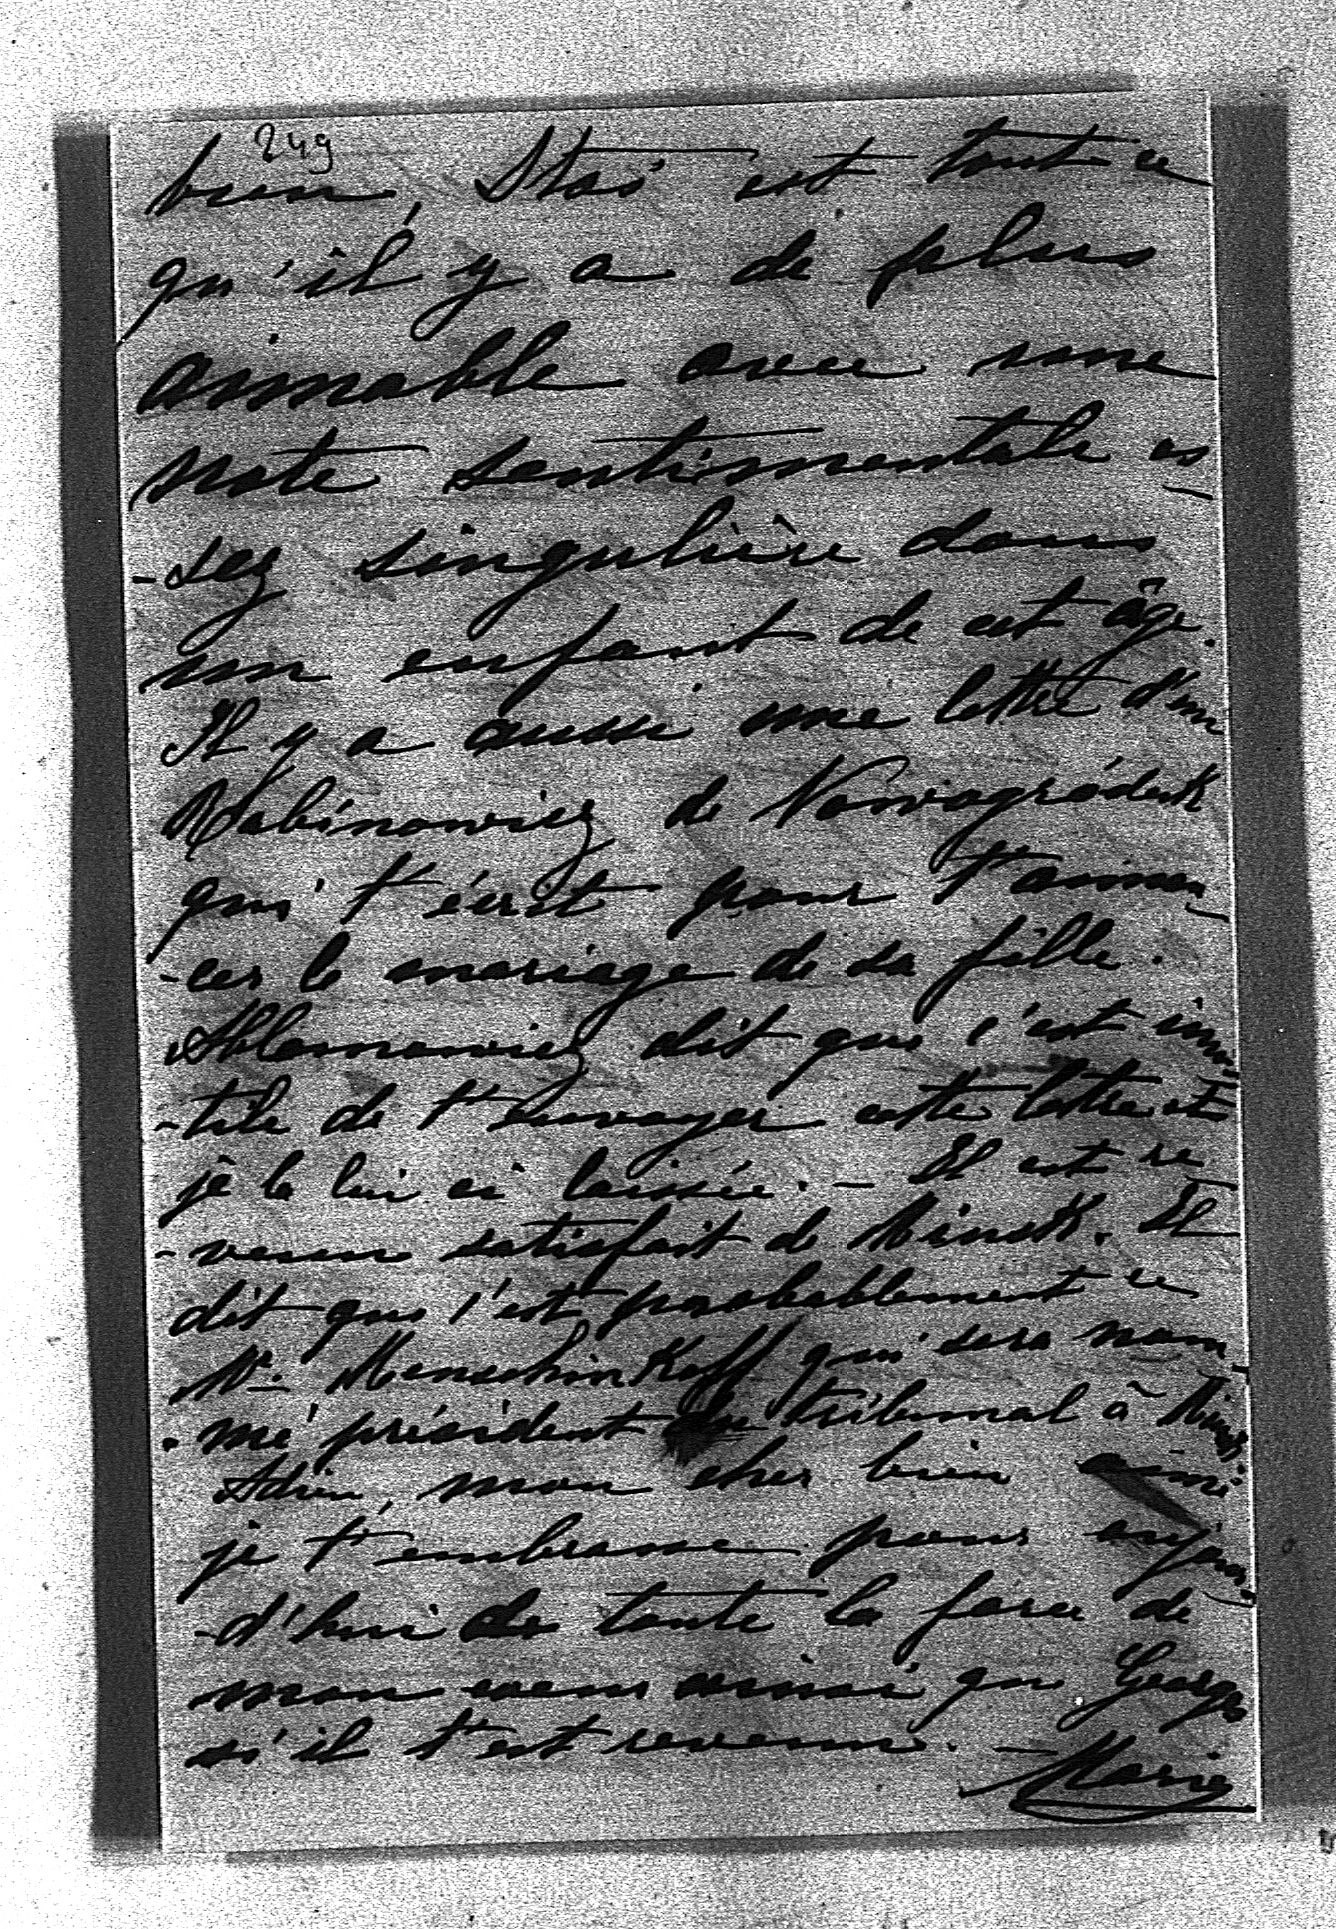 249
bien, Staś est tout ce
qu'il y a de plus
aimable avec une
note sentimentale as
-sez singulière dans
un enfant de cet âge.
Il y a aussi une lettre d'un
Rabinowicz de Nowogródek
qui t'écrit pour t'annon
-cer le mariage de sa fille.
Ablamowicz dit que c'est inu
-tile de t'envoyer cette lettre et
je la lui ai laissée. – Il est re
-venu satisfait de Minsk. Il
dit que c'est probablement ce
Mr. Menschinkoff qui sera nom
-mé président du tribunal à Minsk.
Adieu, mon cher bien aimé
je t'embrasse pour aujour
-d'hui de toute la force de
mon coeur ainsi que George
s'il t'est revenu. –
Marie